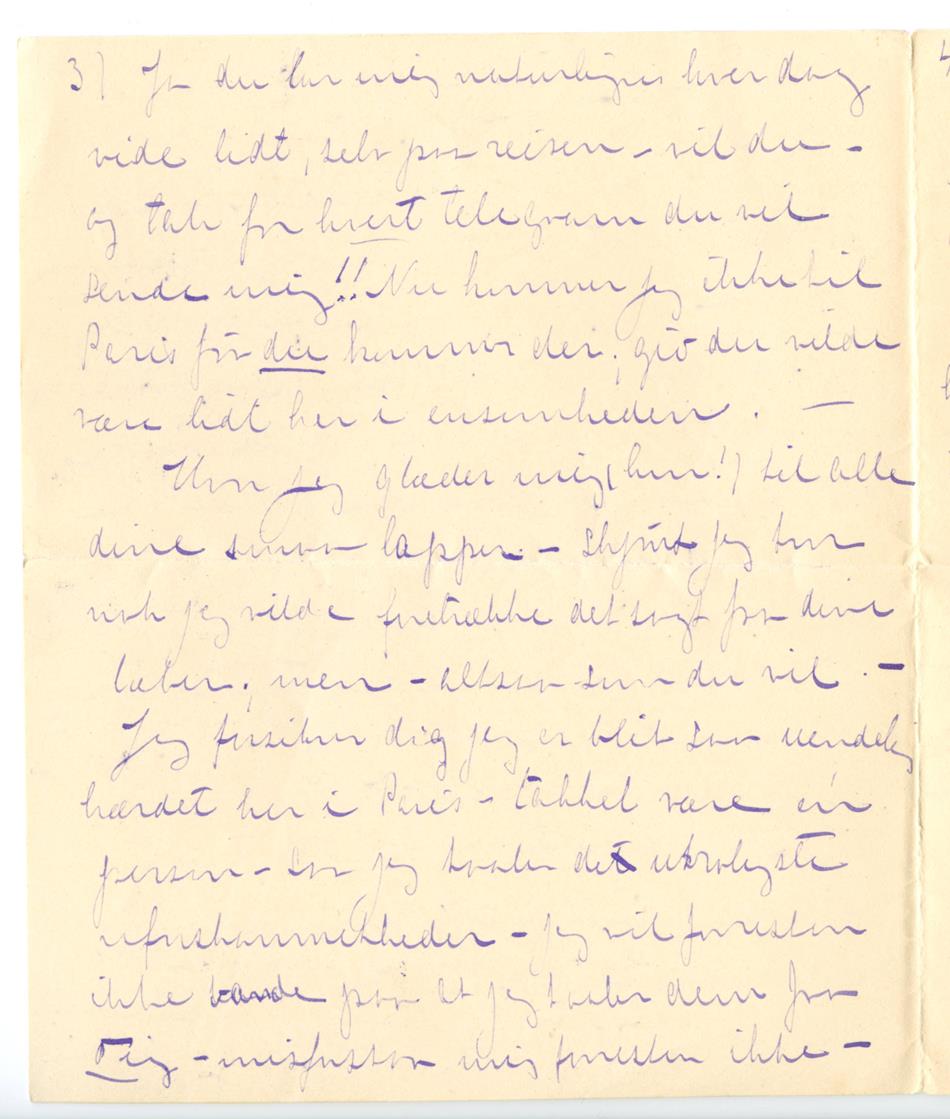 3) Ja du lar mig naturligvis hver dag
vide lidt, selv paa reisen – vil du –
og tak for hvert telegram du vil
sende mig!! Nu kommer jeg ikke til
Paris før du kommer der; gid du vilde
være lidt her i ensomheden. —
Hvor jeg glæder mig (hm!) til alle
dine smaa lapper – skjønt jeg tror
nok jeg vilde foretrække det sagt fra dine
læber; men – altsaa som du vil. –
Jeg forsikrer dig jeg er blit saa uendelig
hærdet her i Paris – takket være én
person – saa jeg taaler det utroligste
uforskammetheder – jeg vil forresten
ikke bande paa at jeg taaler dem fra
Dig – misforstaa mig forresten ikke –